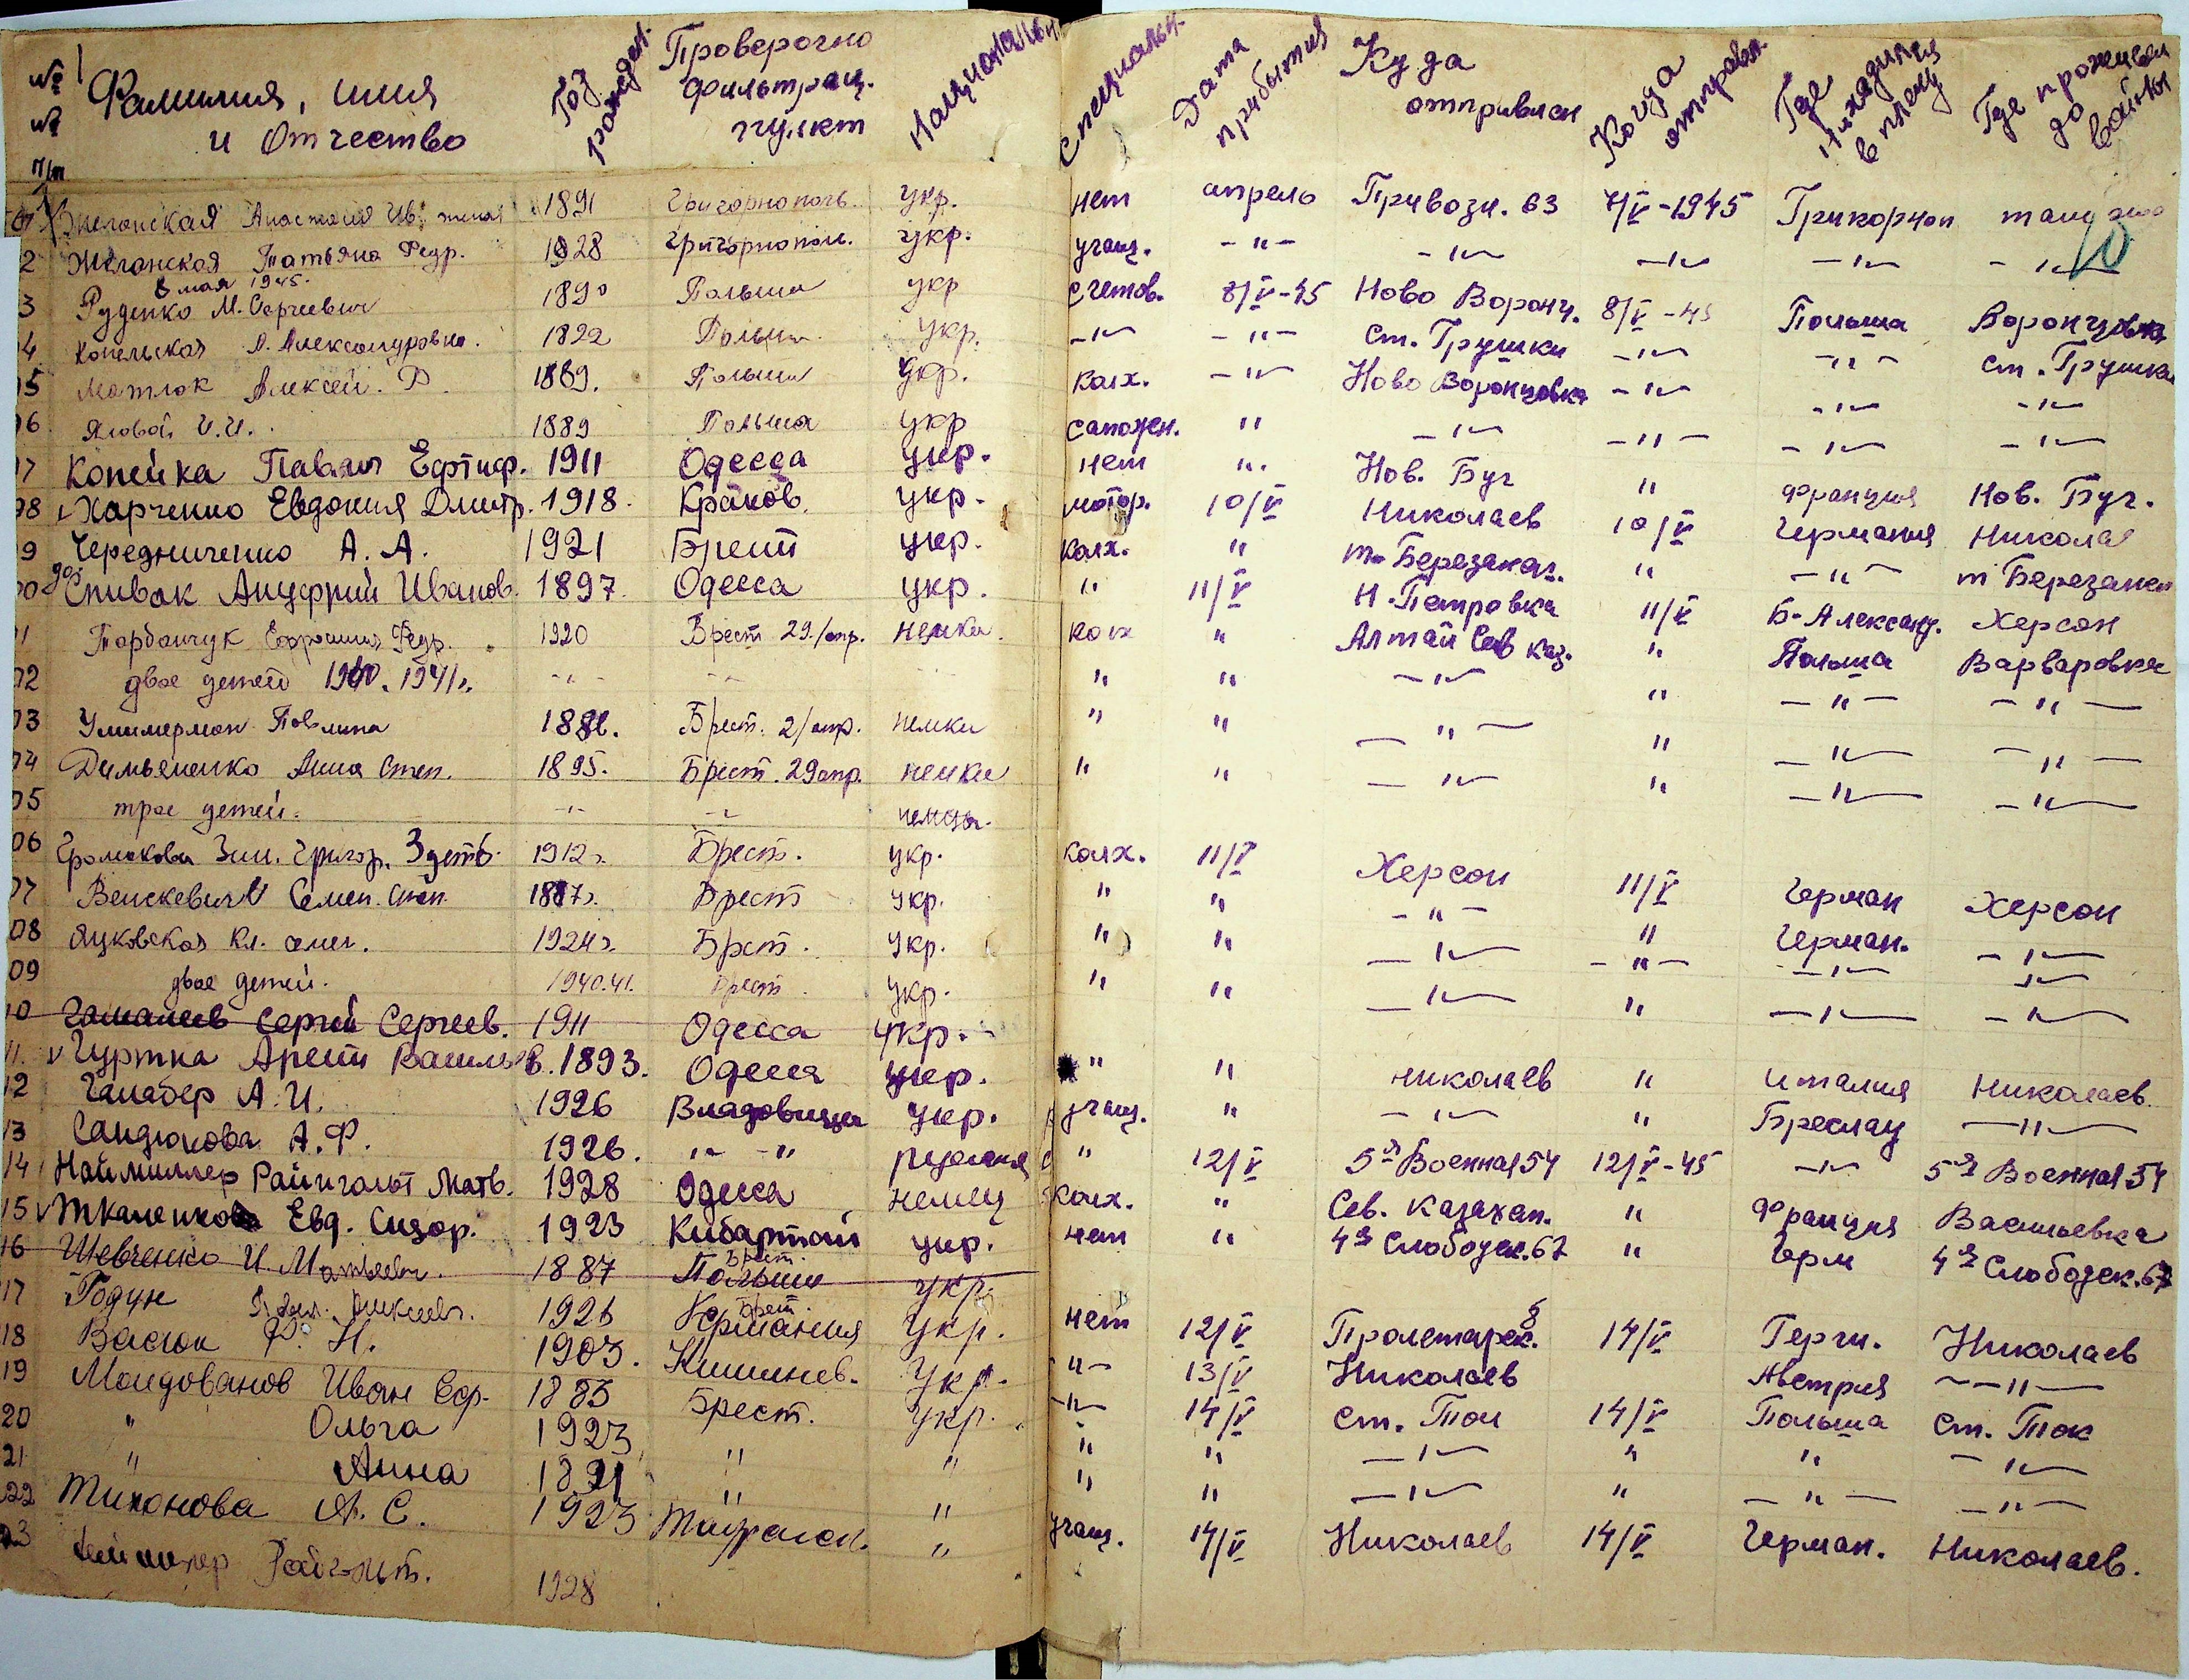 № № п/п Фамилия, имя и Отчество Год рожден. Проверочно фильтрац. пункт Национальн. Специальн. Дата прибытия Куда отправлен Когда отправл. Где находился в плену Где проживал до войны
Анастасия Ив. 1891 Григорнополь. укр. нет апрель Привозн. 63 7/V-1945 Григорноп там же
2 Жеганская Татьяна Федр. 1928 Григорнопол. укр. учащ. -"- -"- -"- -"- -"-
8 мая 1945.
3 Руденко М. Сергеевич 1890 Польша укр счетов. 8/V-45 Ново Воронц. 8/V-45 Польша Воронцовка
4. Копельская А. Александровна. 1822 Польша укр. -"- -"- ст. Трушки -"- -"- ст. Трушки
5 Матлок Алексей. Ф. 1889. Польша укр. колх. -"- Ново Воронцовка -"- -"- -"-
6. Яловой И.И. 1889 Польша укр сапожн. " -"- -"- -"- -"-
7 Копейка Павел Ефтиф. 1911 Одесса укр. нет " Нов. Буг " Франция Нов. Буг.
98 v Харченко Евдокия Дмитр. 1918. Краков. укр. мотор. 10/V Николаев 10/V Германия Николаев
9 Чередниченко А. А. 1921 Брест укр. колх. " т. Березанск. " -"- т Березанск
00 Спивак Ануфрий Иванов. 1897. Одесса укр. " 11/V Н-Петровка 11/V Б-Александ. Херсон
1 Торбанчук Ефросиния Федр. 1920 Брест 29./апр. немки. колх " Алтай Сев каз. " Польша Варваровка
02 двое детей 1940. 1941г. -"- -"- " " -"- " -"- -"-
03 Павлина 1882. Брест. 2/апр. немки " " -"- " -"- -"-
04 Демьяненко Анна Степ. 1895. Брест. 29апр. немки " " -"- " -"- -"-
05 трое детей. -"- -"- немцы.
06 Громокова Зин. Григор. 3 детей 1912г. Брест. укр. колх. 11/V Херсон 11/V Герман Херсон
07 Венскевич Семен. Степ. 1887г. Брест укр. " " -"- " Герман. -"-
08 Яцковская Кл. семен. 1924г. Брест. укр. " " -"- -"- -"- -"-
09 двое детей. 1940.41. Брест. укр. " " -"- " -"- -"-
10 Гамалиев Сергей Сергеев. 1911 Одесса укр.
11. v Гуртка Арест Василев. 1893. Одесса укр. " " Николаев " Италия Николаев
12 Ганабер А.И. 1926 Владовица укр. учащ. " -"- " Бреслау -"-
13 Сандюкова А.Ф. 1926. " - " русская " 12/V 5я Военная 54 12/V-45 -"- 5я Военная 54
14 Наймиллер Райнгольт Матв. 1928 Одесса немец колх. " Сев. Казахан. " Франция Васильевка
15 v Ткаленко Евд. Сидор. 1923 Кибартай укр. нет " 4я Слободск. 67 " Герм 4я Слободск. 67
16 Шевченко И. Матвеевич. 1887 Польша Брест. укр.
17 Годун Алексеевич. 1926 Германия Брест. Укр. нет 12/V Пролетарск. 8 14/V Герм. Николаев
18 Васюк Ф. Н. 1903. Кишинев. Укр. -"- 13/V Николаев Австрия -"-
19 Молдованов Иван Еф. 1883 Брест. Укр. -"- 14/V ст. Ток 14/V Польша ст. Ток
20 " Ольга 1923 " " " " -"- " " -"-
21 " Анна 1891 " " " -"- " -"- -"-
22 Тихонова А. С. 1923 Тауроген. " учащ. 14/V Николаев 14/V Герман. Николаев.
23 Райгольт. 1928